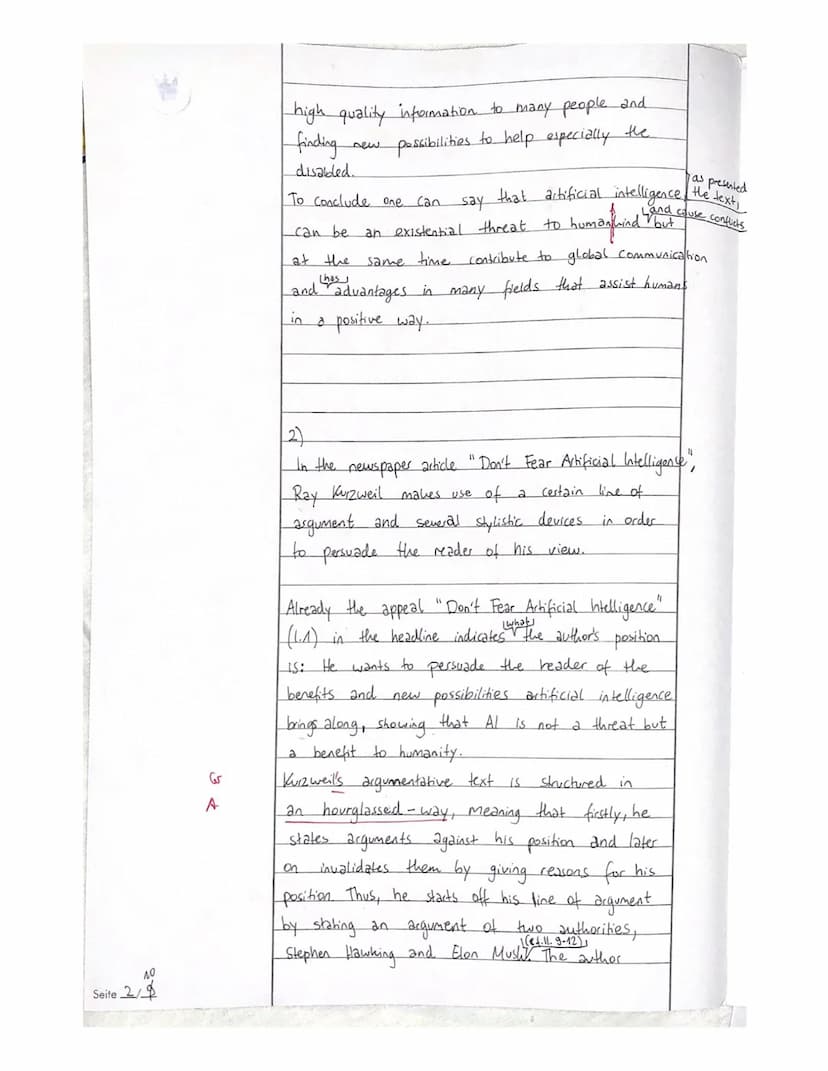 high quality information to many people and
finding new possibilities to help especially the
disabled.
To conclude one can say that artificial intelligence, as presented
the text,
can be an existential threat to humankind and cause conflicts but
at the same time contribute to global communication
and has advantages in many fields that assist humans
in a positive way.
2)
In the newspaper article "Don't Fear Artificial Intelligence",
Ray Kurzweil makes use of a certain line of
argument and several stylistic devices in order
to persuade the reader of his view.
Already the appeal "Don't Fear Artificial Intelligence"
(l.1) in the headline indicates what the author's position
is: He wants to persuade the reader of the
benefits and new possibilities artificial intelligence
brings along, showing that AI is not a threat but
a benefit to humanity.
Gr Kurzweil's argumentative text is structured in
A an hourglassed-way, meaning that firstly, he
states arguments against his position and later
on invalidates them by giving reasons for his
position. Thus, he starts off his line of argument
by stating an argument of two authorities,
Stephen Hawking and Elon Musk (cf. ll. 9-12). The author
Seite 2/10